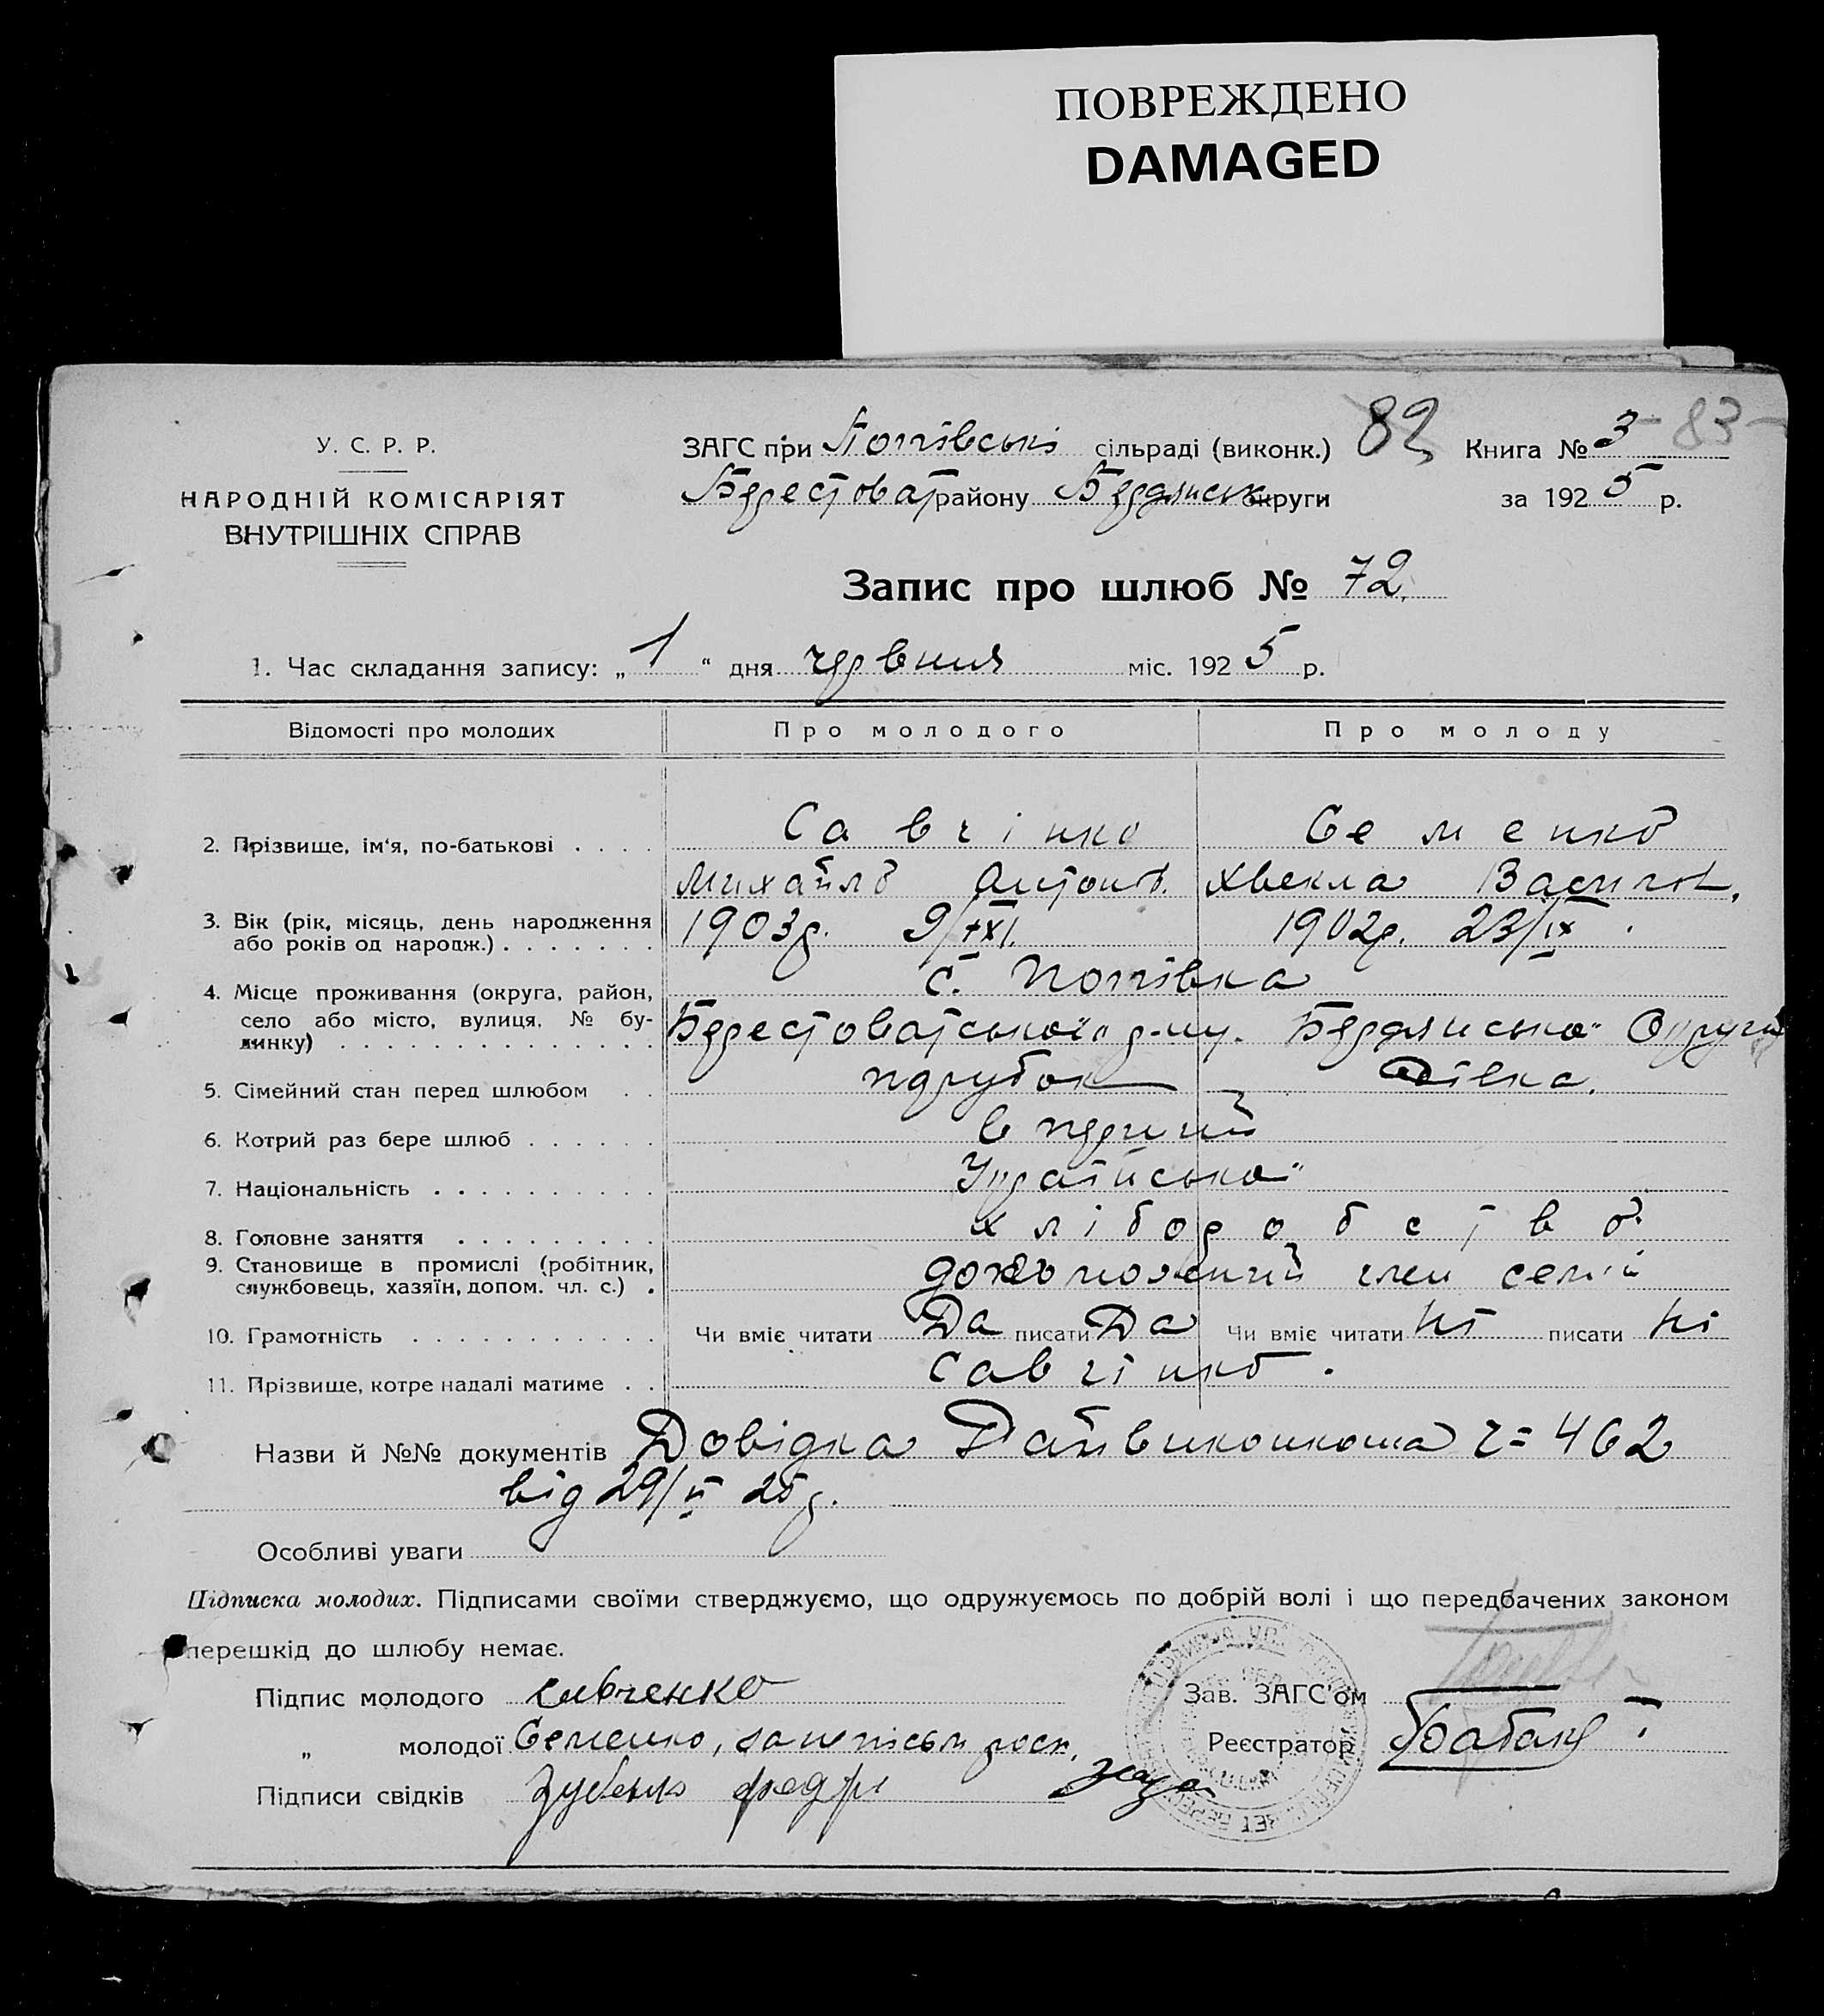 ПОВРЕЖДЕНО
DAMAGED
У. С. Р. Р.
НАРОДНІЙ КОМІСАРІЯТ
ВНУТРІШНІХ СПРАВ
ЗАГС при Попівські сільраді (виконк.) 82 Книга № 3 - 83 -
Берестоват району Бердянськ округи за 192 5 р.
Запис про шлюб № 72
1. Час складання запису: „ 1 “ дня червня міс. 192 5 р.
Відомості про молодих Про молодого Про молоду
2. Прізвище, ім'я, по-батькові . . . . Савчінко Семенко
Михайло Антонов. Хвекла Васильов.
3. Вік (рік, місяць, день народження 1903р. 9/XI. 1902р. 23/IX.
або років од народж.) . . . . . . .
4. Місце проживання (округа, район, с. Попівка
село або місто, вулиця, № бу- Берестоватської р-ну. Бердянської Округи
динку) . . . . . . . . . . . . . .
5. Сімейний стан перед шлюбом . . парубок Дівка.
6. Котрий раз бере шлюб . . . . . . в перший
7. Національність . . . . . . . . . . Україньської
8. Головне заняття . . . . . . . . . хліборобство
9. Становище в промислі (робітник, допоможний член семїі
службовець, хазяїн, допом. чл. с.) .
10. Грамотність . . . . . . . . . . . Чи вміє читати Да писати Да Чи вміє читати Ні писати Ні
11. Прізвище, котре надалі матиме . . Савчінко.
Назви й №№ документів Довідка Райвиконкома ч= 462
від 29/V 25р.
Особливі уваги
Підписка молодих. Підписами своїми стверджуємо, що одружуємось по добрій волі і що передбачених законом
перешкід до шлюбу немає.
Підпис молодого Савченко Зав. ЗАГС'ом
„ молодої Семенко, Реєстратор
Підписи свідків Зубенко